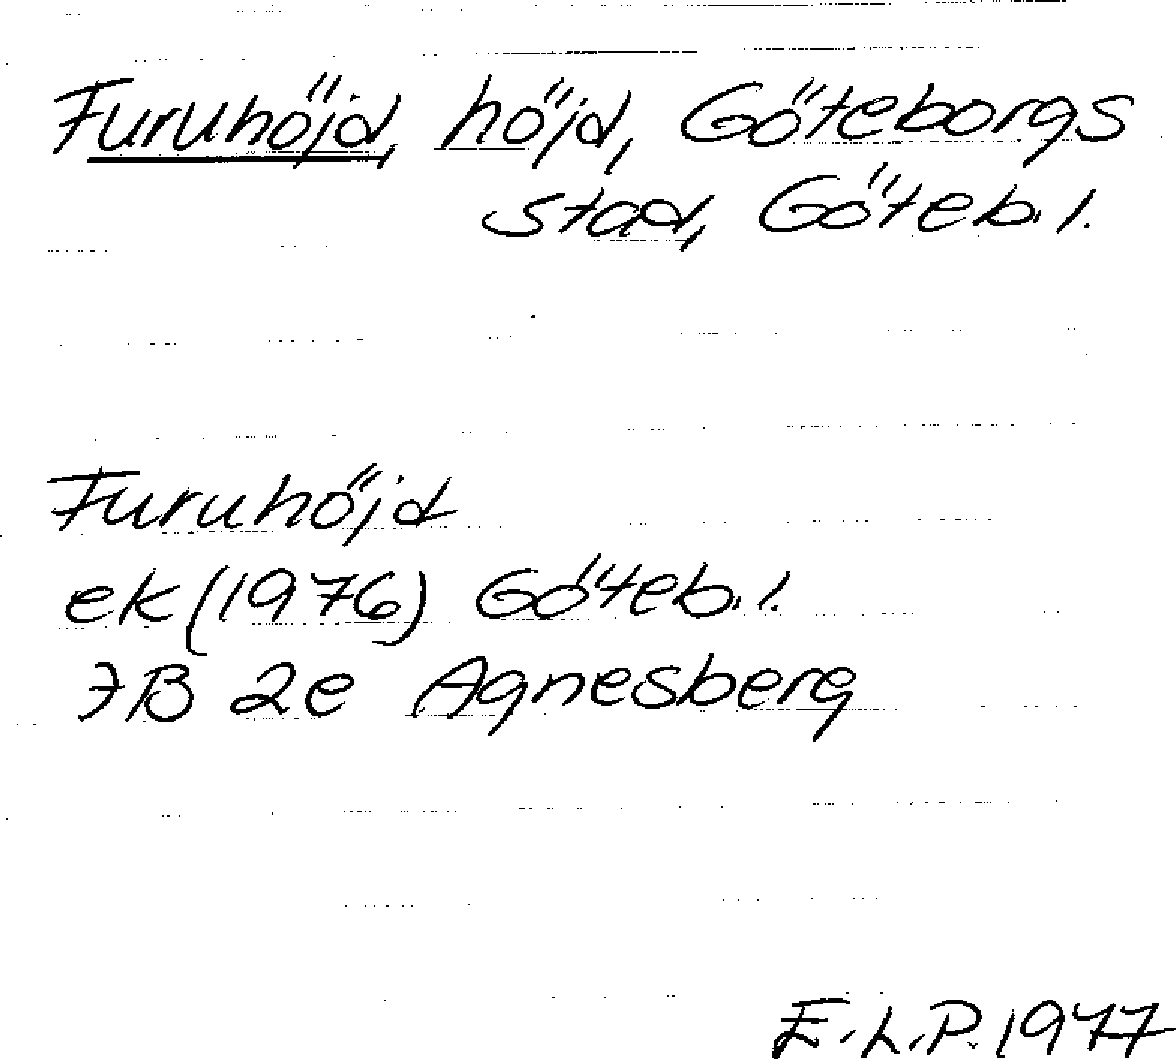 Furuhöjd, höjd, Göteborgs
stad, Göteb. l.
Furuhöjd
ek (1976) Göteb. l.
7B 2e Agnesberg
E.L.P. 1977